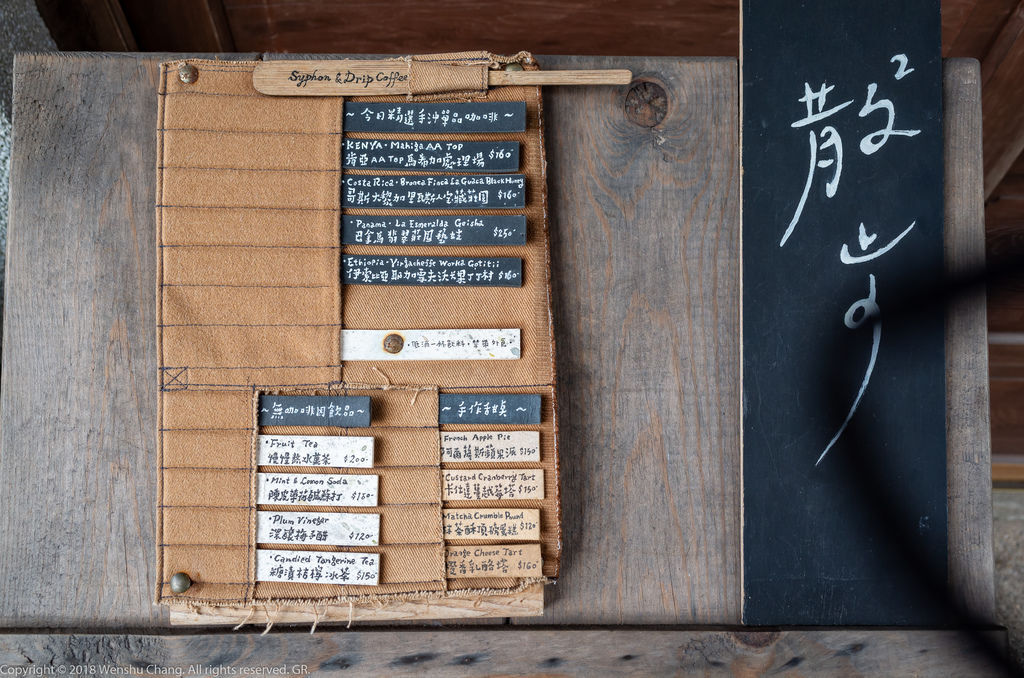 Syphon & Drip Coffee
~ 今日精選手沖單品咖啡 ~
KENYA · Mahiga AA TOP
肯亞 AA TOP 馬希加處理場 $160
Costa Rica · Bronca Finca La Guaca Black Honey
哥斯大黎加 $160
Panama · La Esmeralda Geisha
巴拿馬翡翠莊園藝妓 $250
Ethiopia · Yirgacheffe Worka Gotitii
伊索比亞耶加雪夫沃卡果丁丁村 $160
· 低消一杯飲料 · 禁帶外食 ·
~ 無咖啡因飲品 ~
· Fruit Tea
慢慢熬水菓茶 $200
· Mint & Lemon Soda
陳皮薄荷鹹酥打 $150
· Plum Vinegar
深釀梅子醋 $120
· Candied Tangerine Tea
糖漬桔梅冰茶 $150
~ 手作甜桌 ~
French Apple Pie
阿爾薩斯蘋果派 $150
Custard Cranberry Tart
卡仕達蔓越莓塔 $150
Matcha Crumble Pound
抹茶酥頂磅蛋糕 $120
Orange Cheese Tart
橙香乳酪塔 $160
散步
Copyright © 2018 Wenshu Chang. All rights reserved. GR.